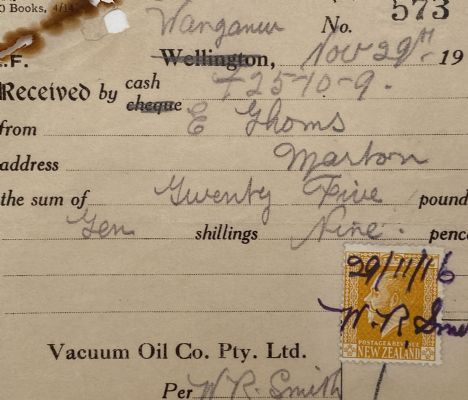 0 Books, 4/14
Wanganui No. 573
.F. Wellington, Nov 29th 19
Received by cash
cheque £25-10-9.
from E Thoms
address Marton
the sum of Twenty Five pound
Ten shillings Nine. pence
29/11/16
W.R. Smi
POSTAGE & REVENUE
NEW ZEALAND
Vacuum Oil Co. Pty. Ltd.
Per W R. Smith